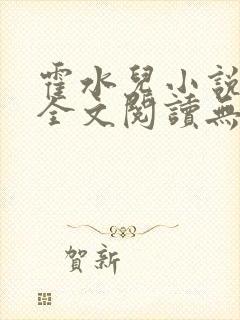 霍水兒小說
全文閱讀無
賀新